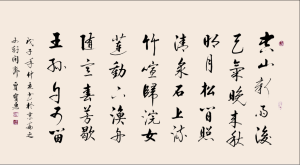 空山新雨後
天氣晚来秋
明月松間照
清泉石上流
竹喧歸浣女
蓮動下漁舟
隨意春芳歇
王孫自可留